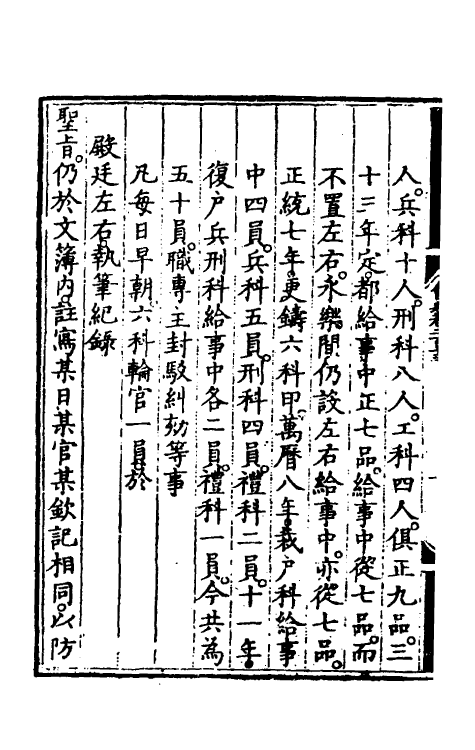 人。兵科十人。刑科八人。工科四人。俱正九品。三
十三年定。都給事中正七品。給事中從七品。而
不置左右。永樂間仍設左右給事中。亦從七品。
正統七年。更鑄六科印。萬曆八年。裁户科給事
中四員。兵科五員。刑科四員。禮科二員。十一年。
復户兵刑科給事中各二員。禮科一員。今共為
五十員。職專主封駁糾劾等事
凡每日早朝。六科輪官一員。於
殿廷左右。執筆紀錄
聖旨。仍於文簿內。註寫某日某官某欽記相同。以防